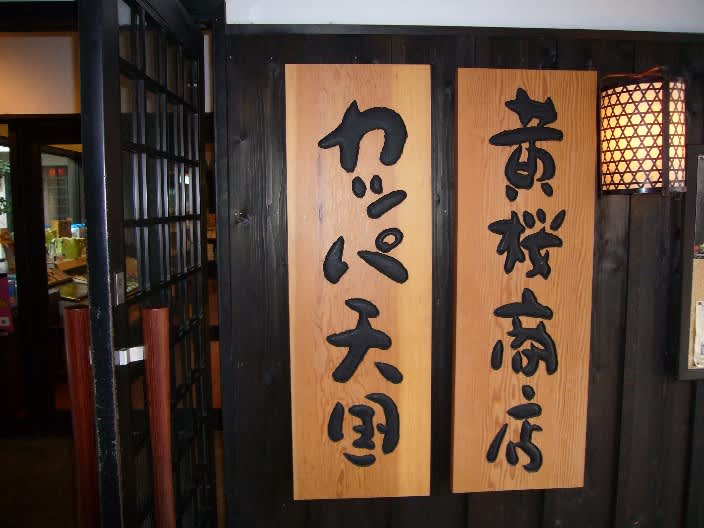 黄桜商店
カッパ天国